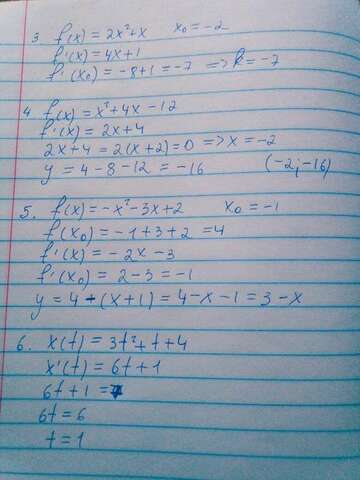 3 f(x) = 2x²+x x₀ = -2
f'(x) = 4x+1
f'(x₀) = -8+1 = -7 => k = -7
4 f(x) = x²+4x-12
f'(x) = 2x+4
2x+4 = 2(x+2) = 0 => x = -2
y = 4-8-12 = -16 (-2; -16)
5. f(x) = -x²-3x+2 x₀ = -1
f(x₀) = -1+3+2 = 4
f'(x) = -2x-3
f'(x₀) = 2-3 = -1
y = 4-(x+1) = 4-x-1 = 3-x
6. x(t) = 3t²+t+4
x'(t) = 6t+1
6t+1 = 7
6t = 6
t = 1